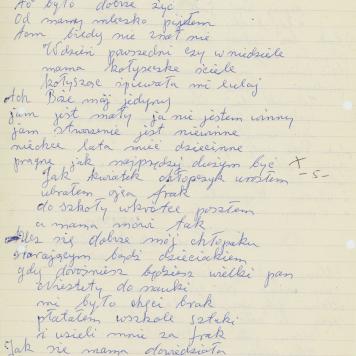 to było dobrze żyć
Od mamy mleczko piłem
tam biedy nie znał nie
W dzień powszedni czy w niedziele
mama kołyseczke ściele
kołysząc śpiewała mi lulaj
Ach Boże mój jedyny
jam jest mały ja nie jestem winny
jam stworzenie jest niewinne
niechce lata mieć dziecinne
pragnę jak najprędzej dużym być X
Jak kwiatek chłopczyk urosłem -s-
ubrałem ojca frak
do szkoły wkrótce poszłem
a mama mówi tak
Ucz się dobrze mój chłopaku
starającym bądź dzieciakiem
gdy dorośniesz będziesz wielki pan
Niestety do nauki
mi było chęci brak
płatałem wszkole sztuki
i wzieli mnie za frak
Jak się mama dowiedziała